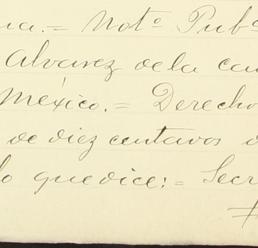 na.= Notº Pubº
Alvarez de la ca
México.= Derecho
de diez centavos
lo que dice:= Secr